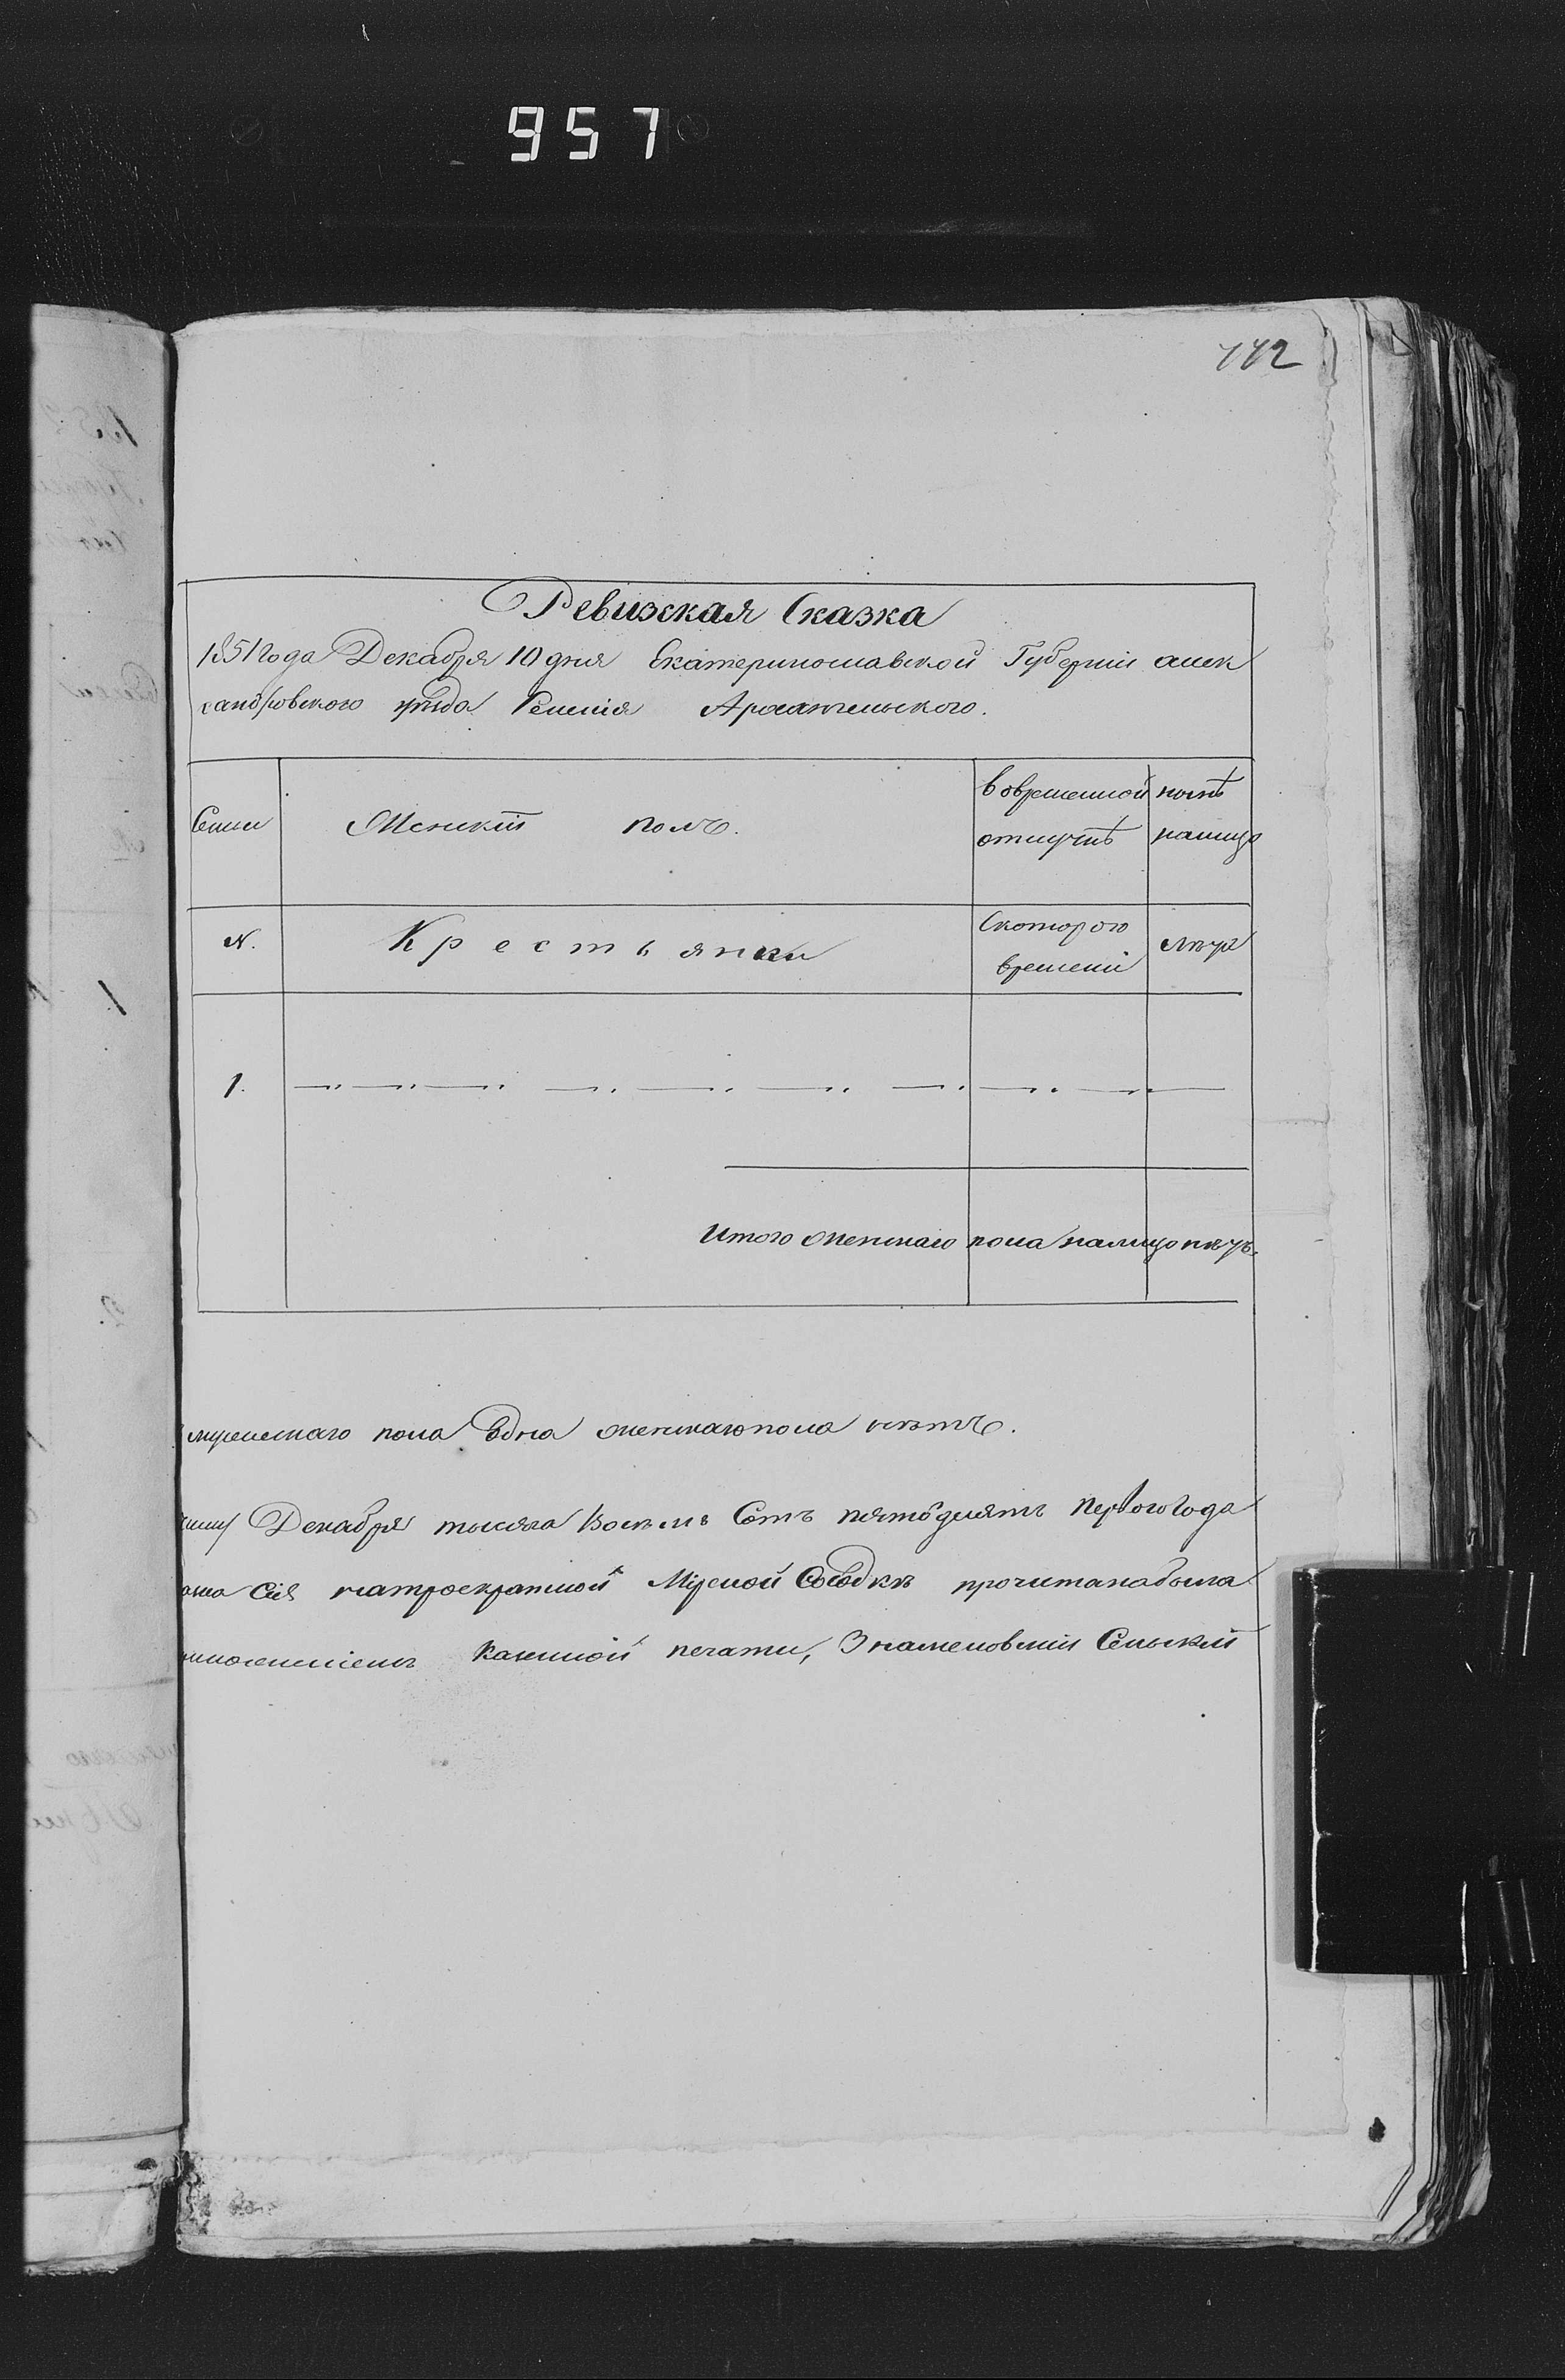 957
442
Ревизская Сказка
1851 года Декабря 10 дня Екатеринославской Губернии алек
сандровского уезда Селения Архангельского.
Семьи
Женский полъ.
Вовременной
отлучкѣ
нынѣ
налицо
N.
Крестьянки
Скоторого
времени
Лѣта
1.
Итого женскаго пола налицо нѣтъ.
мужескаго пола Одна женскаго пола нѣтъ.
Декабря тысяча Восемь Сотъ пятьдесятъ Первого года
Сія натроекратной Мірской Сходкѣ прочитана была
приложеніемъ Казенной печати, Знаменовски Сельский